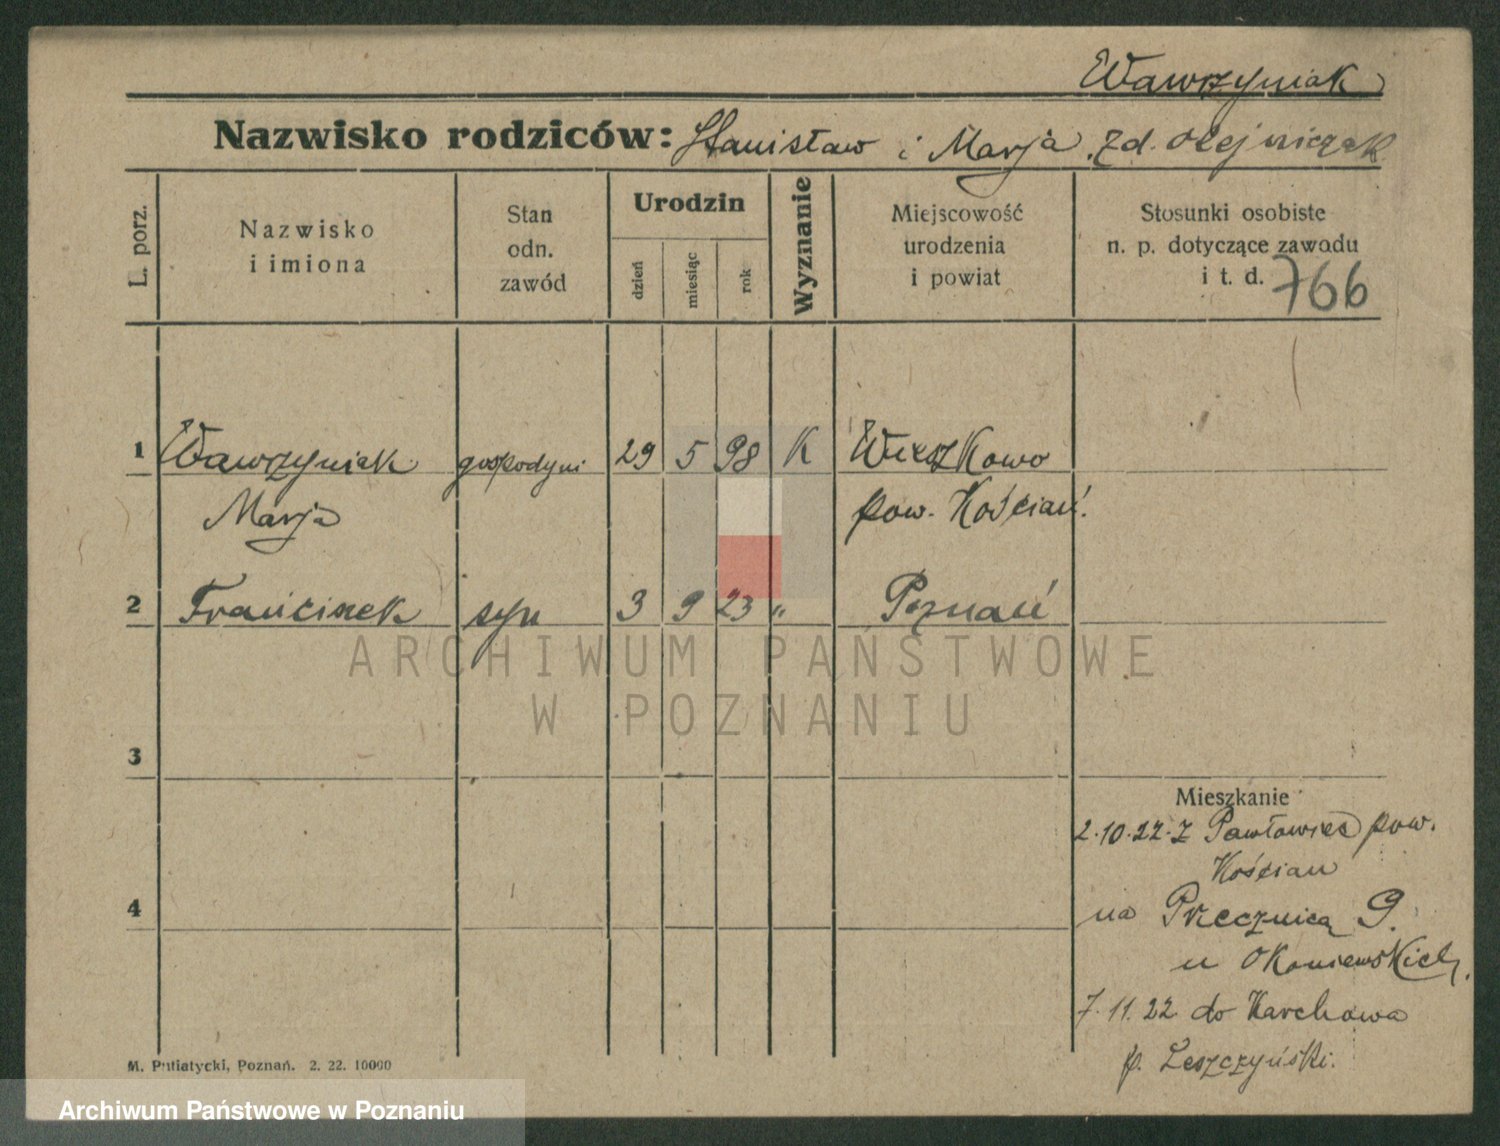 Wawrzyniak
Nazwisko rodziców: Stanisław i Marja zd. Olejniczak
L. porz.
Nazwisko
i imiona
Stan
odn.
zawód
Urodzin
dzień
miesiąc
rok
Wyznanie
Miejscowość
urodzenia
i powiat
Stosunki osobiste
n. p. dotyczące zawodu
i t. d. 766
1 Wawrzyniak gospodyni 29 5 98 K Wieszkowo
Marja pow. Kościan.
2 Franciszek syn 3 9 23 " Poznań
ARCHIWUM PAŃSTWOWE
W POZNANIU
3
Mieszkanie
2.10.22. z Pawłowic pow.
Kościan
4
na Przecznicą 9.
u Okoniewskich.
7.11.22 do Karchowa
p. Leszczyński.
M. Putiatycki, Poznań. 2. 22. 10000
Archiwum Państwowe w Poznaniu